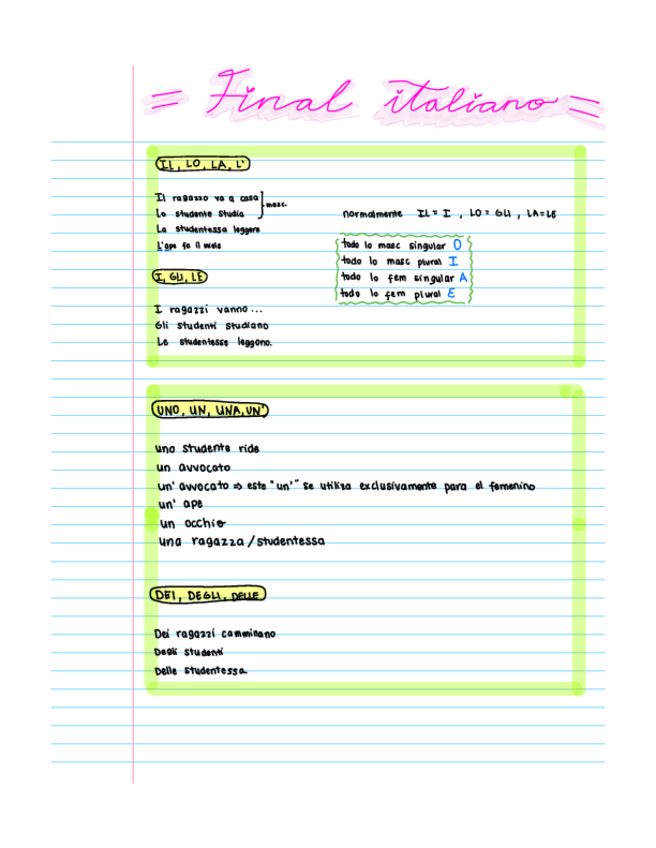 = Final italiano =
IL, LO, LA, L'
Il ragazzo va a casa
Lo studente studia
masc.
La studentessa leggere
L'ape fa il miele
normalmente IL = I , LO = GLI , LA = LE
todo lo masc singular O
todo lo masc plural I
todo lo fem singular A
todo lo fem plural E
I, GLI, LE
I ragazzi vanno...
Gli studenti studiano
Le studentesse leggono.
UNO, UN, UNA, UN'
uno studente ride
un avvocato
un' avvocato => este "un'" se utiliza exclusivamente para el femenino
un' ape
un occhio
una ragazza / studentessa
DEI, DEGLI, DELLE
Dei ragazzi camminano
Degli studenti
Delle studentessa